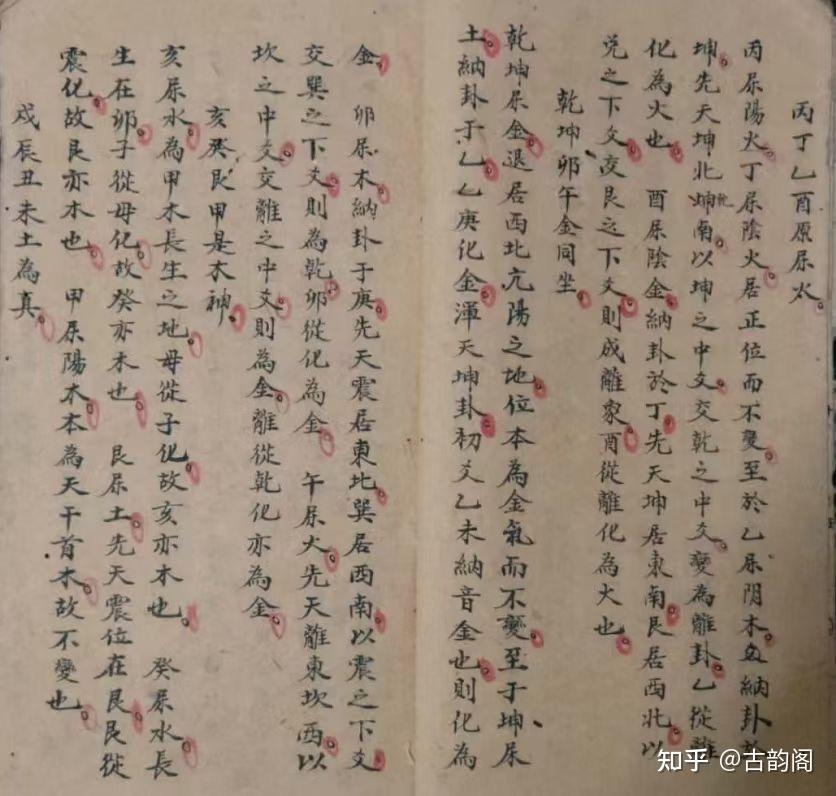 丙丁乙酉原属火。
丙属陽火。丁属陰火。居正位而不變。至於乙属阴木。納卦於
坤。先天坤北乾南。以坤之中爻。交乾之中爻。變為離卦。乙從離
化為火也。 酉属陰金。納卦於丁。先天坤居東南。艮居西北。以
兌之下爻。交艮之下爻。則成離象。酉從離化為火也。
乾坤卯午金同坐。
乾坤属金。退居西北亢陽之地。位本為金氣而不變。至于坤属
土。納卦于乙。乙庚化金。渾天坤卦。初爻乙未納音金也。則化為
金。 卯属木。納卦于庚。先天震居東北。巽居西南。以震之下爻
交巽之下爻。則為乾。卯從化為金。 午属火。先天離東坎西。以
坎之中爻。交離之中爻。則為金。離從乾化亦為金。
亥癸艮甲是木神。
亥属水。為甲木長生之地。母從子化。故亥亦木也。 癸属水。長
生在卯。子從母化。故癸亦木也。 艮属土。先天震位在艮。艮從
震化。故艮亦木也。 甲属陽木。本為天干首木。故不變也。
戌辰丑未土為真。
知乎 @古韵阁